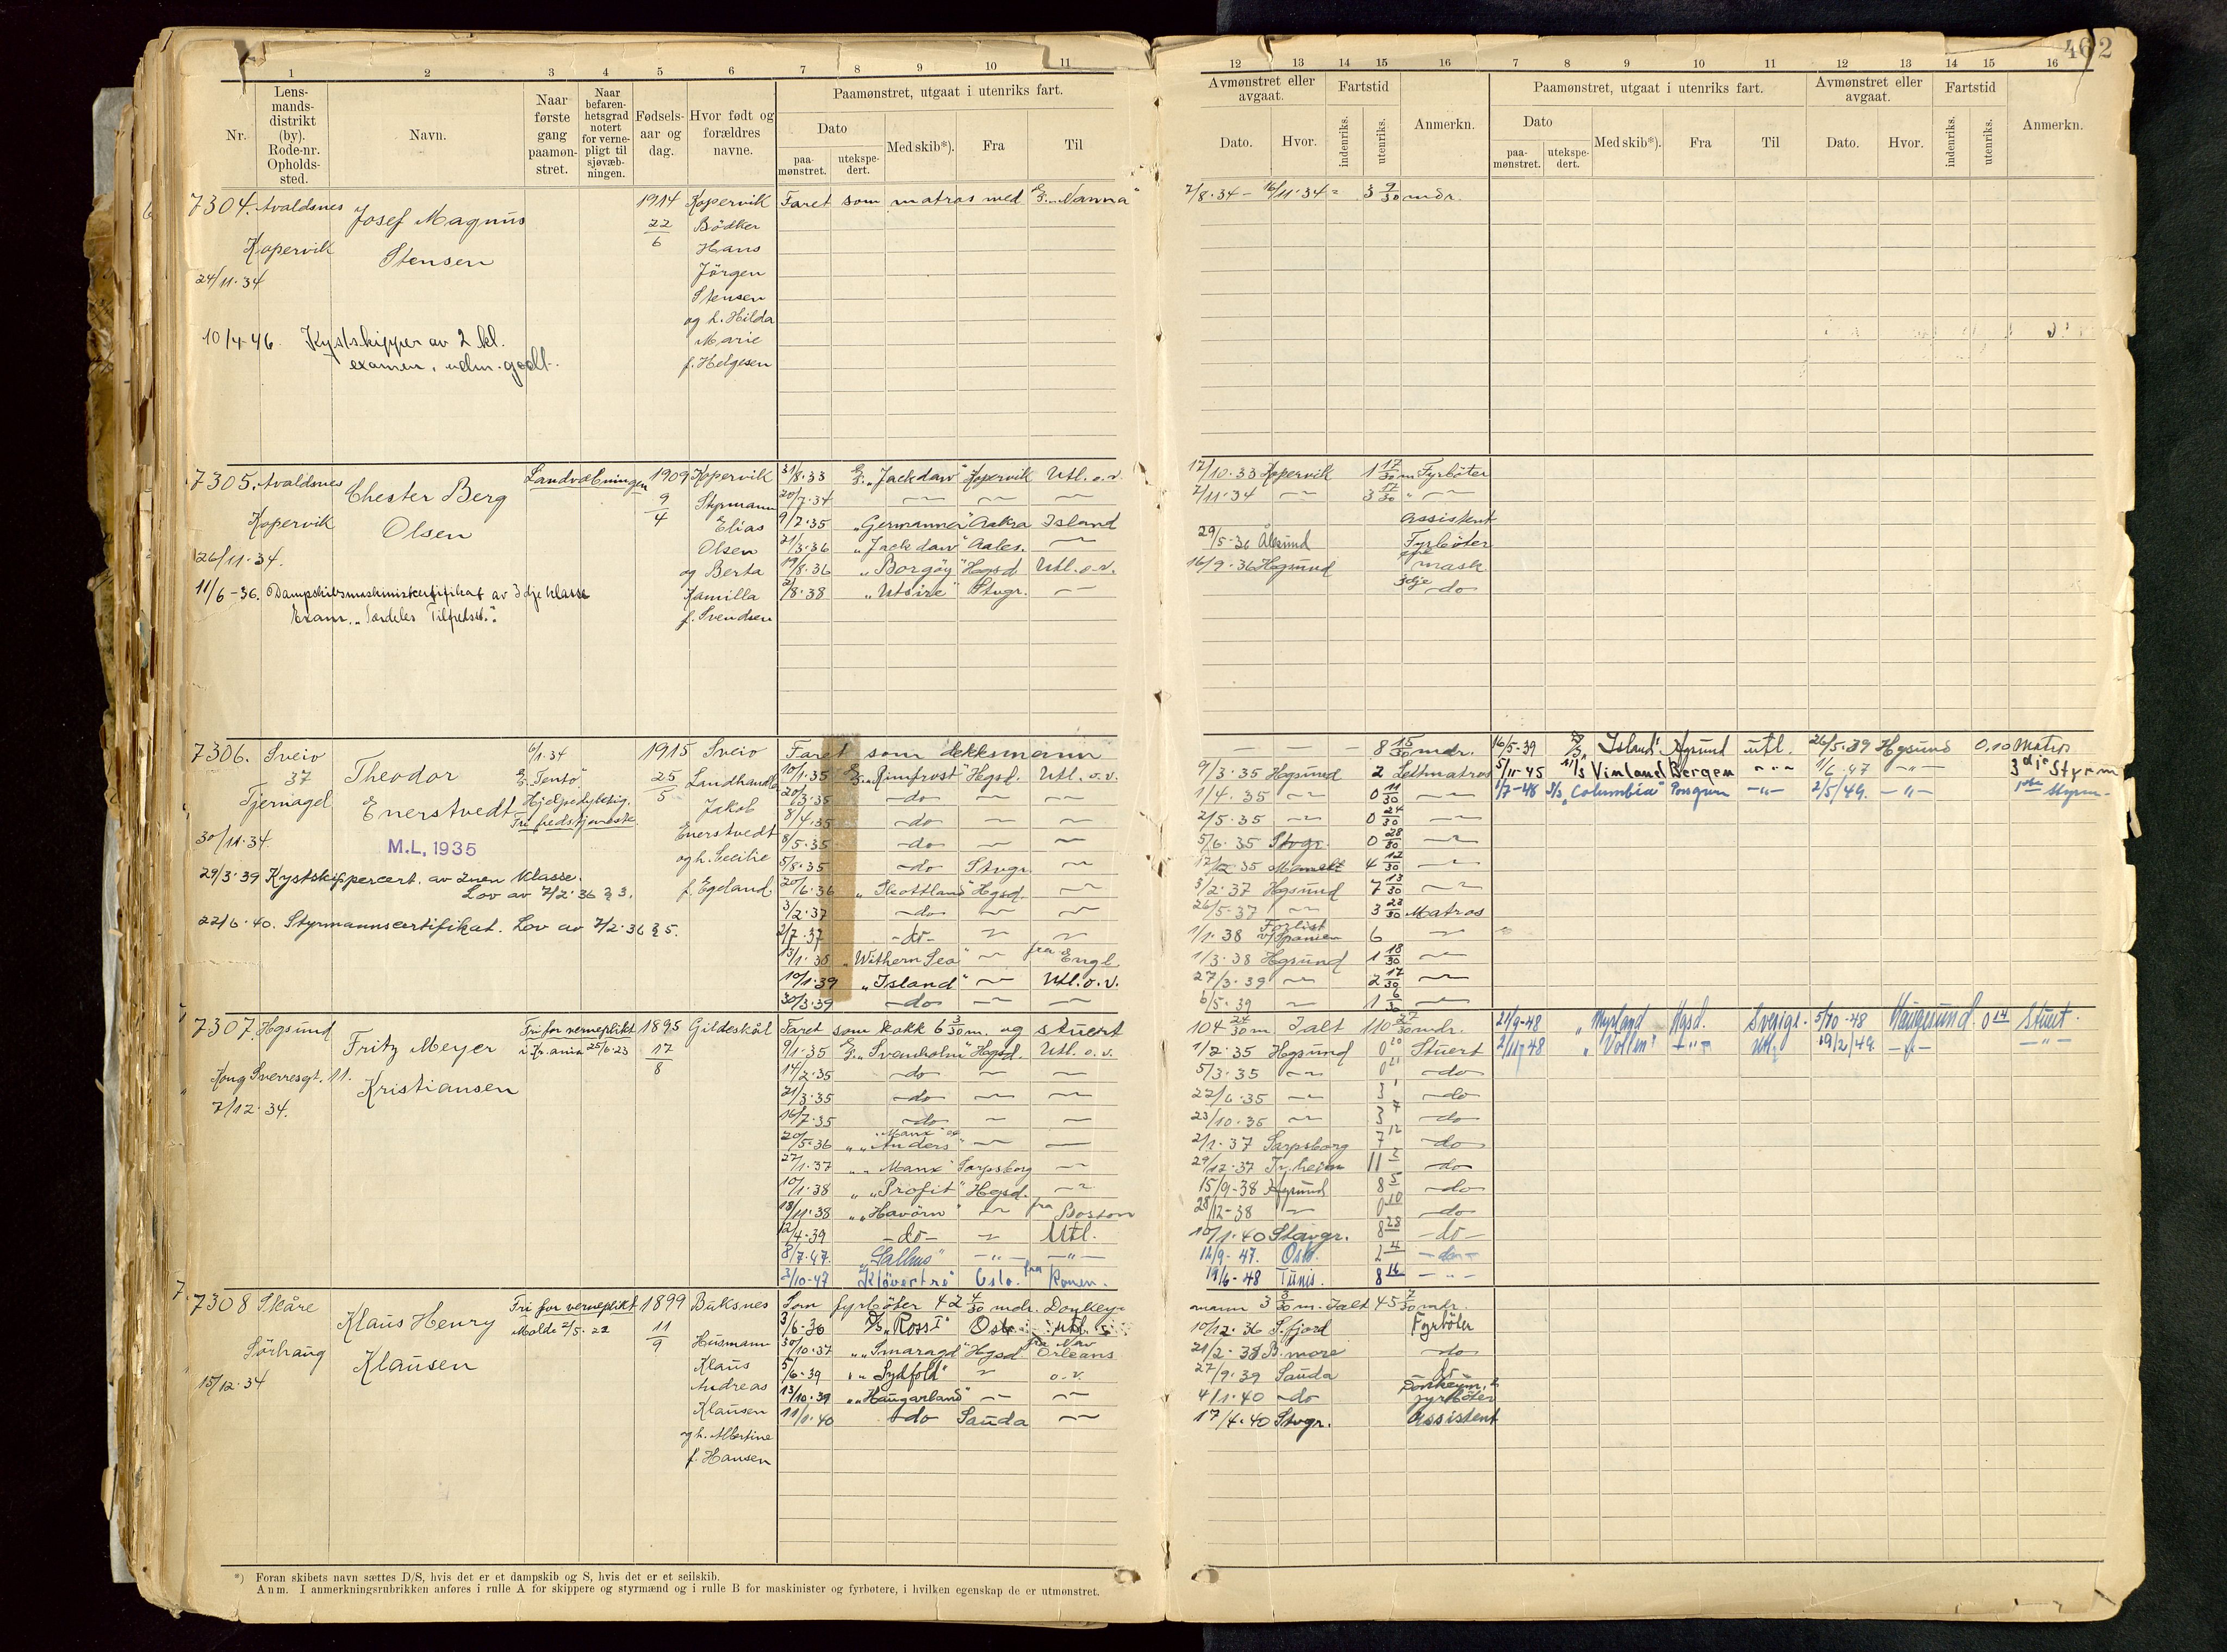 462
1 2 3 4 5 6 7 8 9 10 11
Nr.
Lens-
mands-
distrikt
(by).
Rode-nr.
Opholds-
sted.
Navn.
Naar
første
gang
paamøn-
stret.
Naar
befaren-
hetsgrad
notert
for verne-
pligt til
sjøvæb-
ningen.
Fødsels-
aar og
dag.
Hvor født og
forældres
navne.
Paamønstret, utgaat i utenriks fart.
Dato
paa-
mønstret.
utekspe-
dert.
Med skib*).
Fra
Til
12 13 14 15 16 7 8 9 10 11 12 13 14 15 16
Avmønstret eller
avgaat.
Dato.
Hvor.
Fartstid
indenriks.
utenriks.
Anmerkn.
Paamønstret, utgaat i utenriks fart.
Dato
paa-
mønstret.
utekspe-
dert.
Med skib*).
Fra
Til
Avmønstret eller
avgaat.
Dato.
Hvor.
Fartstid
indenriks.
utenriks.
Anmerkn.
7304. Avaldsnes Josef Magnus 1914 Kopervik Faret som matros med "Nanna" 7/8.34 - 16/11.34 = 3 9/30 mdr.
22/6 Bödker
Kopervik Stensen Hans
24/11.34 Jörgen
Stensen
og h. Hilda
10/4-46. Kystskipper av 2 kl. Marie
examen, udm. godt. f. Helgesen
7305. Avaldsnes Chester Berg Landvæbningen 1909 Kopervik 31/8.33 "Jackdaw" Kopervik Utl. o.v. 17/10.33 Kopervik 1 17/30 m Fyrböter
9/4 Styrmann 20/7.34 7/11.34 3 17/30
Kopervik Olsen Elias 9/2.35 "Germanna" Aakra Island Assistent
Olsen 21/3.36 "Jackdaw" Aales. 29/5-36 Ålesund Fyrböter
26/11.34. og Berta 19/8.36 "Borgöy" Hgsd Utl. o.v. 16/9.36 Hgsund mask.
11/6-36. Dampskibsmaskinistcertifikat av 3dje klasse Kamilla 2/8.38 "Utsire" Stvgr. 3dje do
Exam. "Særdeles Tilfredsst." f. Svendsen
7306. Sveio Theodor 6/1.34 1915 Sveio Faret som dekksmann 8 15/30 mdr. 16/5-39 "Island" Hgsund utl. 26/5.39 Hgsund 0.10 Matros
37 "Tento" 25/5 Landhandl. 10/1.35 "Rimfrost" Hgsd. Utl. o.v. 9/3.35 Hgsund 2 Lettmatros 5/11-45 Vinland Bergen 1/6.47 3dje Styrm
Tjernagel Enerstvedt Hjelpedyktig. Jakob 20/3.35 do 1/4.35 0 11/30 1/7-48 "Columbia" Porsgrun 2/5/49. 1ste Styrm.
Fri fredstjeneste. Enerstvedt 8/4.35 do 2/5.35 0 24/30
30/11.34. M.L, 1935 8/5.35 do 5/6.35 Stvgr. 0 28/30
og h. Cecilie 5/8.35 do Stvgr. 17/12.35 4 12/30
29/3.39 Kystskippercert. av 2nen klasse. f. Egeland 20/6.36 "Skottland" Hgsd. 3/2.37 Hgsund 7 13/30
Lov av 7/2.36 § 3. 3/2.37 do 26/5.37 3 23/30 Matros
22/6.40. Styrmannscertifikat. Lov av 7/2.36 § 5. 2/7.37 do 1/1.38 Forlist v/Spanien 6
13/1.38 "Withern Sea" fra Engl. 1/3.38 Hgsund 1 18/30
10/1.39 "Island" Utl. o.v. 27/3.39 2 17/30
30/3.39 do 6/5.39 1 6/30
7307. Hgsund Fritz Meyer Fri for verneplikt 1895 Gildeskål Faret som kokk 6 3/30 m. og stuert 104 24/30 m Ialt 110 27/30 mdr. 21/9-48 "Myrland" Hgsd. Sverige. 5/10-48 Haugesund. 0 14 Stuert.
i Kr.ania 25/6.23 17/8 9/1.35 "Svanholm" Hgsd. Utl. o.v. 1/2.35 Hgsund 0 20 Stuert 2/11-48 "Vollen" Utl. 19/2/49.
Kong Sverresgt. 11. Kristiansen 14/2.35 do 5/3.35 0 21 do
7/12.34. 21/3.35 do 22/6.35 3 1 do
16/7.35 do 23/10.35 3 7 do
20/5.36 "Manx" og "Anders" 2/1.37 Sarpsborg 7 12 do
27/1.37 "Manx" Sarpsborg 29/12.37 Tr.heim 11 2 do
10/1.38 "Profit" Hgsd. 15/9-38 Hgsund 8 5 do
18/11.38 "Havörn" fra Boston 28/12-38 0 10 do
12/4.39 do Utl. 10/1.40 Stavgr. 8 28 do
8/7.47. 12/9-47. Oslo. 2 4 do
3/10-47 "Klövertre" Oslo. fra 19/6-48 Tunis. 8 16
7308 Skåre Klaus Henry Fri for verneplikt 1899 Buksnes Som fyrböter 42 4/30 mdr. Donkey- mann 3 3/30 m. Ialt 45 7/30 mdr.
Molde 2/5.22 11/9 3/6-36 D/S "Ross I" Oslo utl. 10/12.36 S.fjord Fyrböter
Sörhaug Klausen Husmann 30/10.37 "Smaragd" Hgsd fra New Orleans 21/2.38 B.more do
15/12.34 Klaus 5/6-39 "Sydfold" o.v. 27/9.39 Sauda do
Andreas 13/10.39 "Haugarland" 4/1.40 do fyrböter
Klausen 11/1.40 do Sauda 17/4.40 Stvgr. Assistent
og h. Albertine
f. Hansen
*) Foran skibets navn sættes D/S, hvis det er et dampskib og S, hvis det er et seilskib.
Anm. I anmerkningsrubrikken anføres i rulle A for skippere og styrmænd og i rulle B for maskinister og fyrbøtere, i hvilken egenskap de er utmønstret.